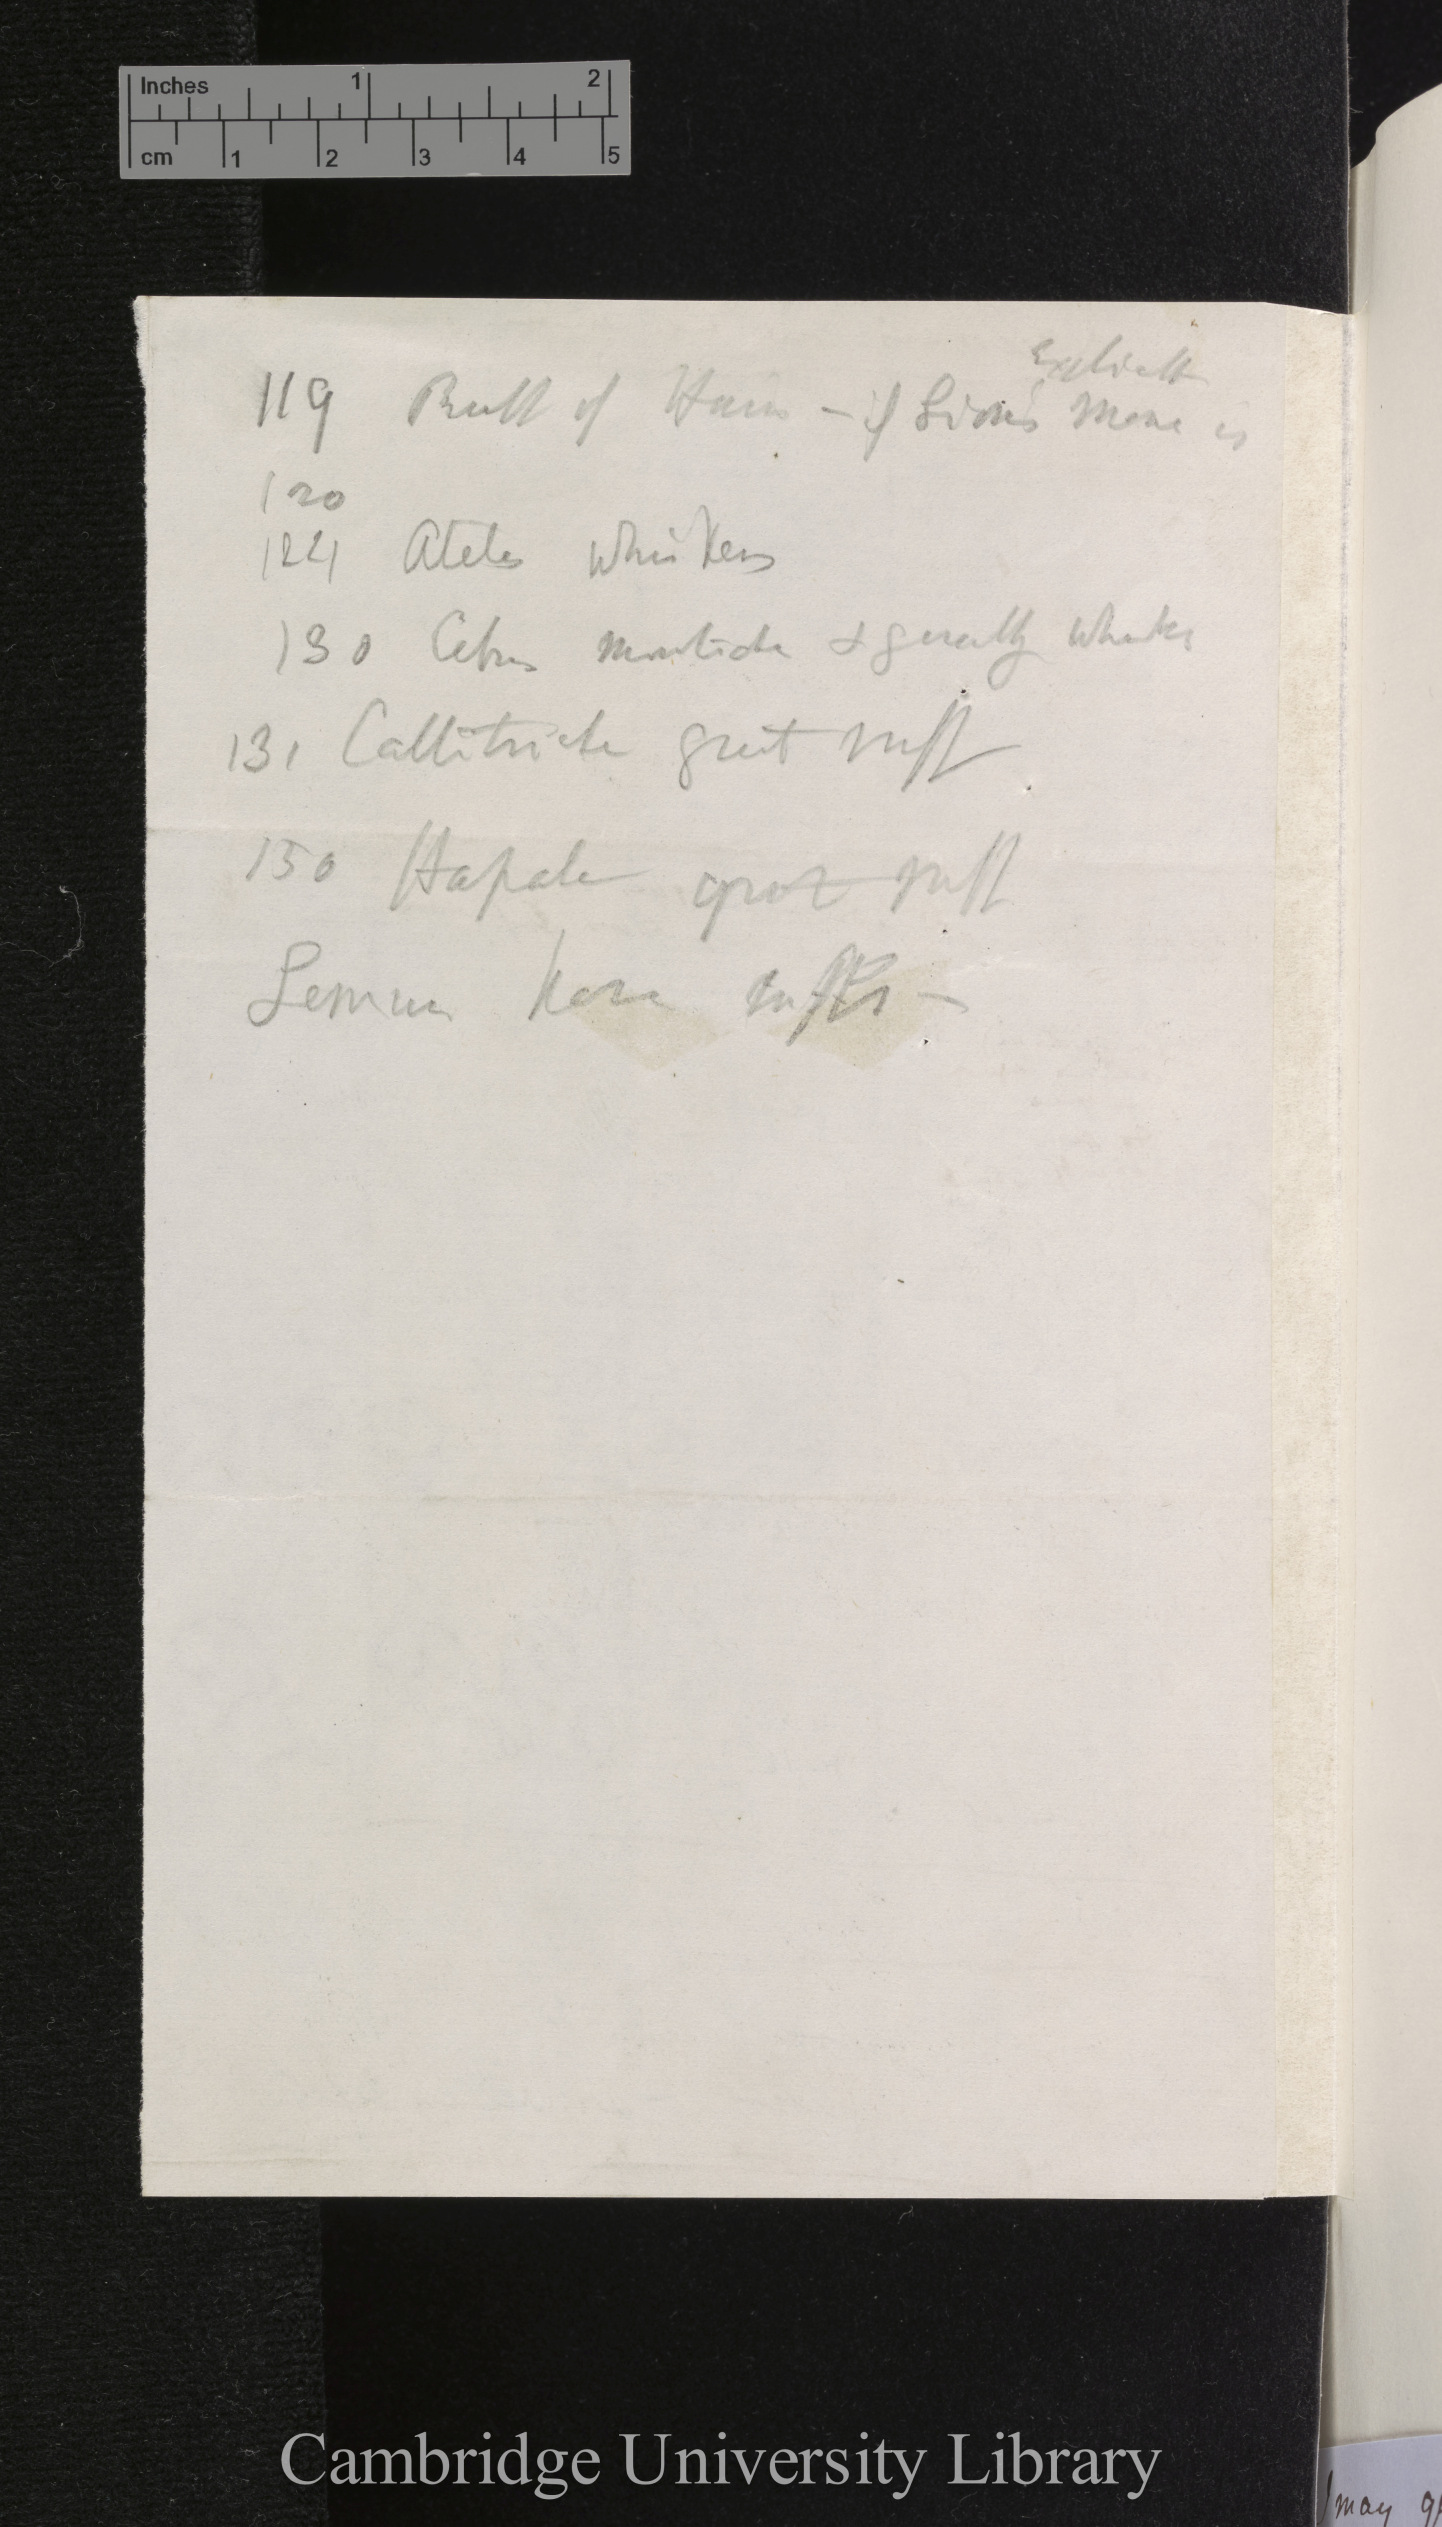 Inches 1 2
cm 1 2 3 4 5
119 Ruff of Hair — if Lion's Mane is
120
124 Ateles Whiskers
130 Cebus & generally whiskers
131 Callitriche great ruff
150 Hapale great ruff
Lemur have ruffs —
Cambridge University Library
may